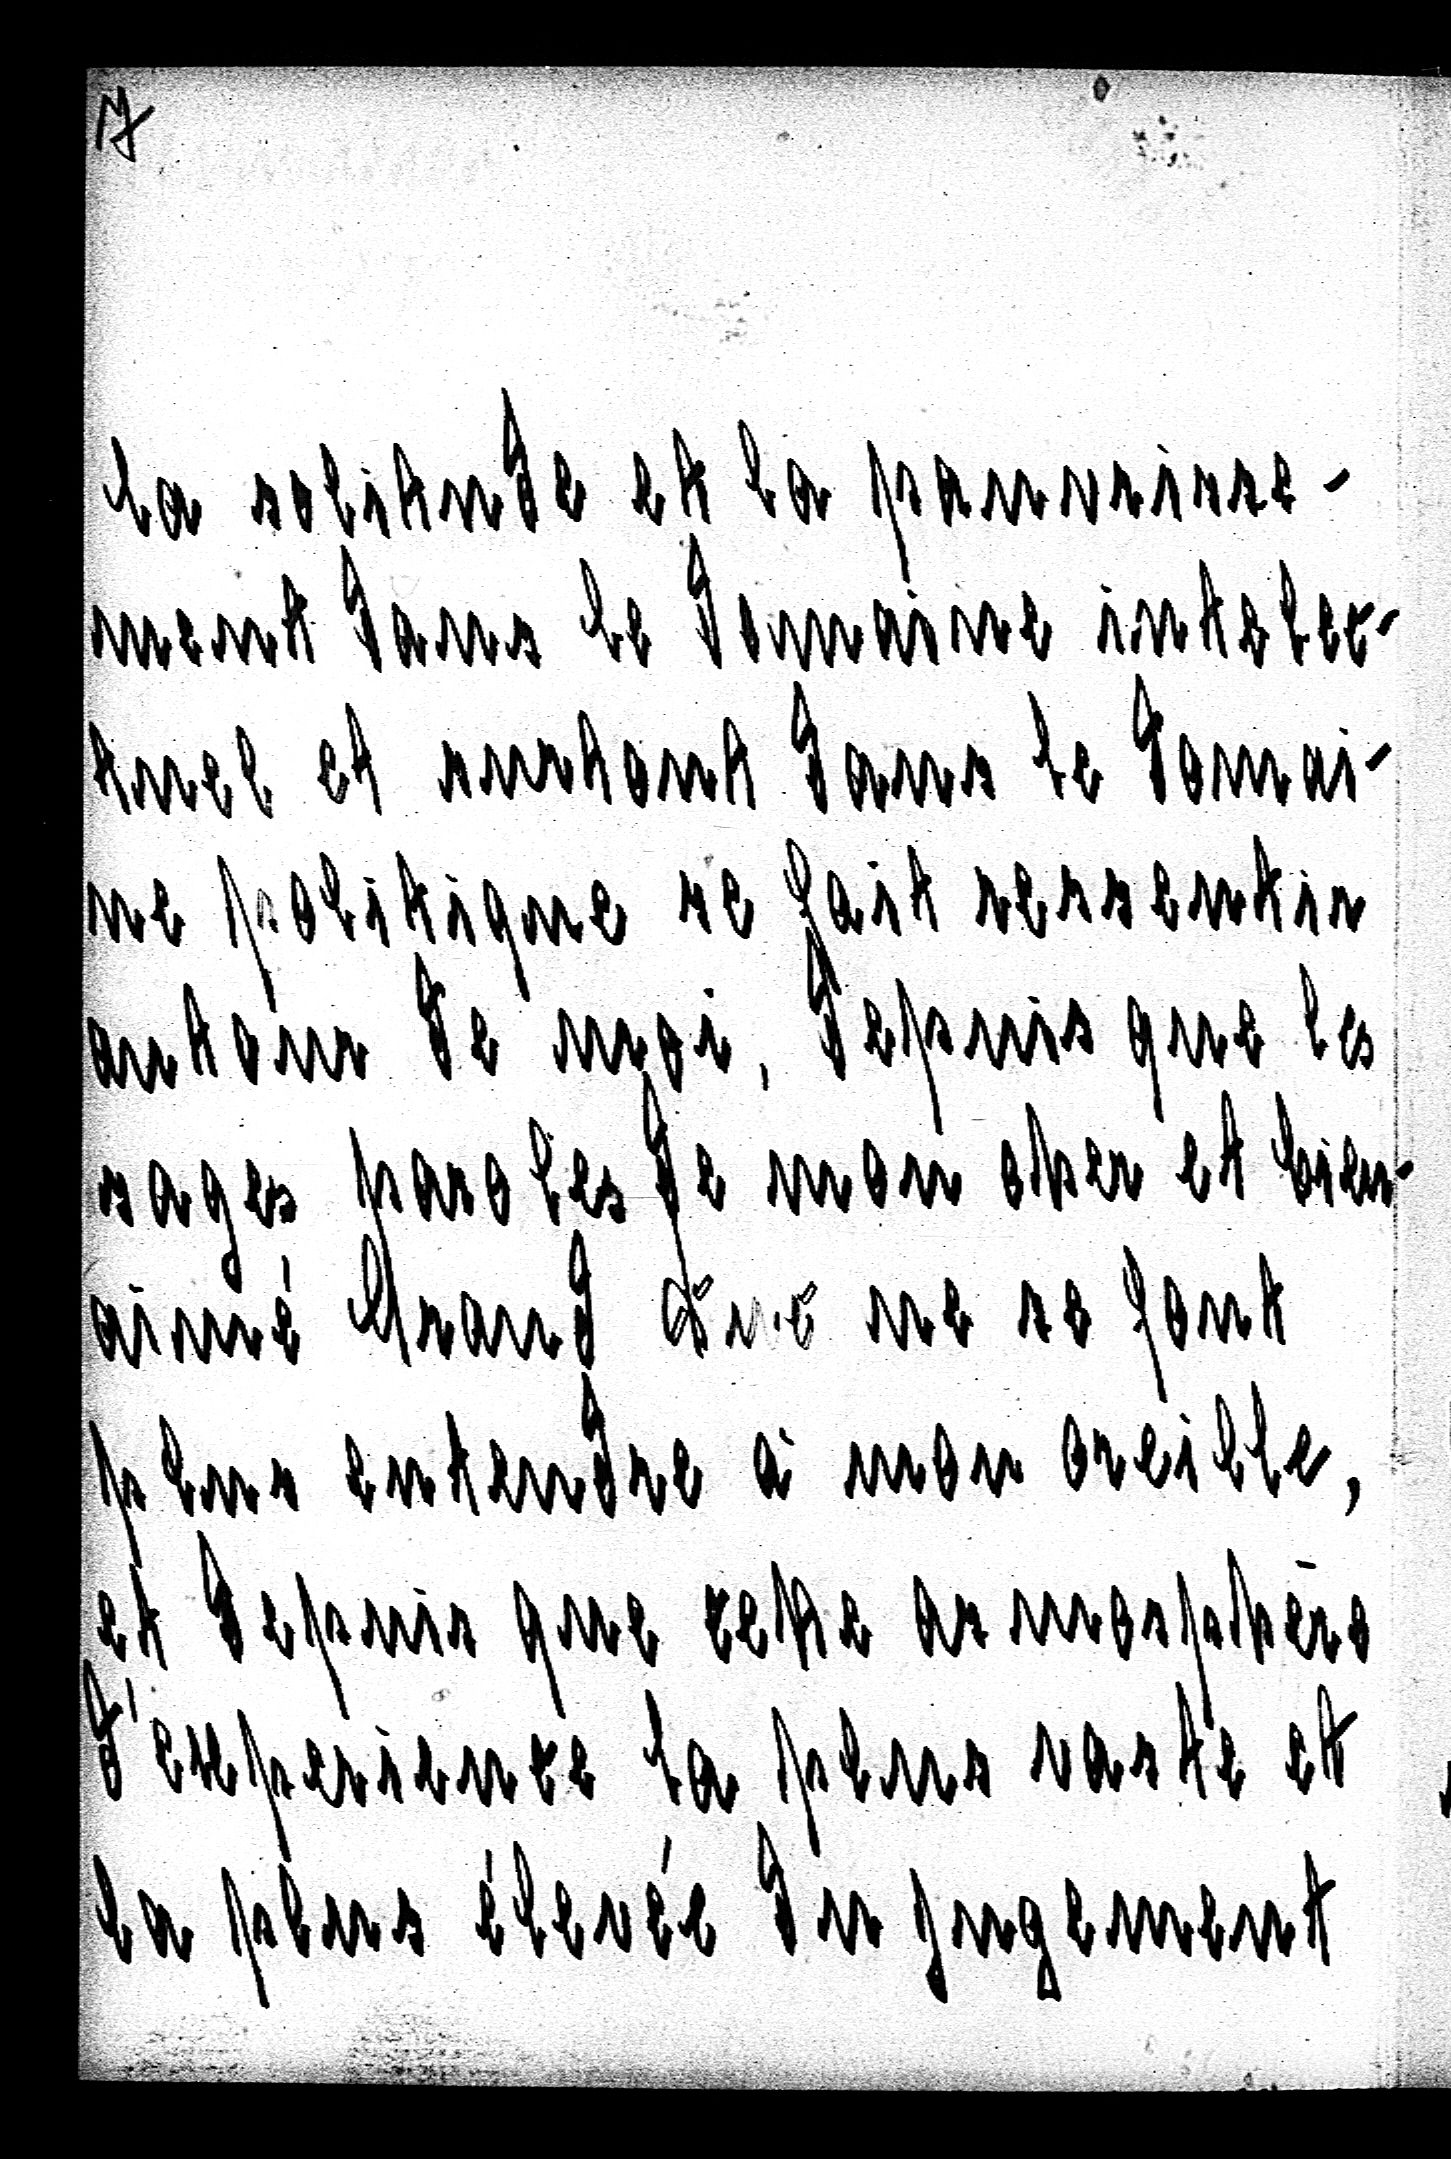 7
la solitude et la pauvrisse-
ment dans le domaine intelec-
tuel et surtout dans le domai-
ne politique se fait ressentir
autour de moi, depuis que les
sages paroles de mon cher et bien-
aimé Grand ne se font
plus entendre à mon oreille,
et depuis que cette asmosphère
d'experience la plus vaste et
la plus élevée du jugement